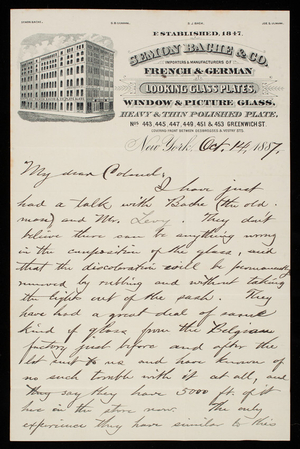 ESTABLISHED, 1847.
SEMON BACHE & CO.
IMPORTERS & MANUFACTURERS OF
FRENCH & GERMAN
LOOKING GLASS PLATES,
WINDOW & PICTURE GLASS,
HEAVY & THIN POLISHED PLATE.
Nos 443, 445, 447, 449, 451 & 453 GREENWICH ST.
New York, Oct. 14, 1887.
My dear Colonel;
I have just
had a talk with Bache (the old
man) and Mr. Levy. They don't
believe there can be anything wrong
in the composition of the glass, and
that the discoloration will be permanently
removed by rubbing and without taking
the lights out of the sash. They
have had a great deal of same
kind of glass from the Belgian
factory just before and after the
lot sent to us and have known of
no such trouble with it at all, and
they say they have 5000 ft. of it
here in the store now. The only
experience they have similar to this